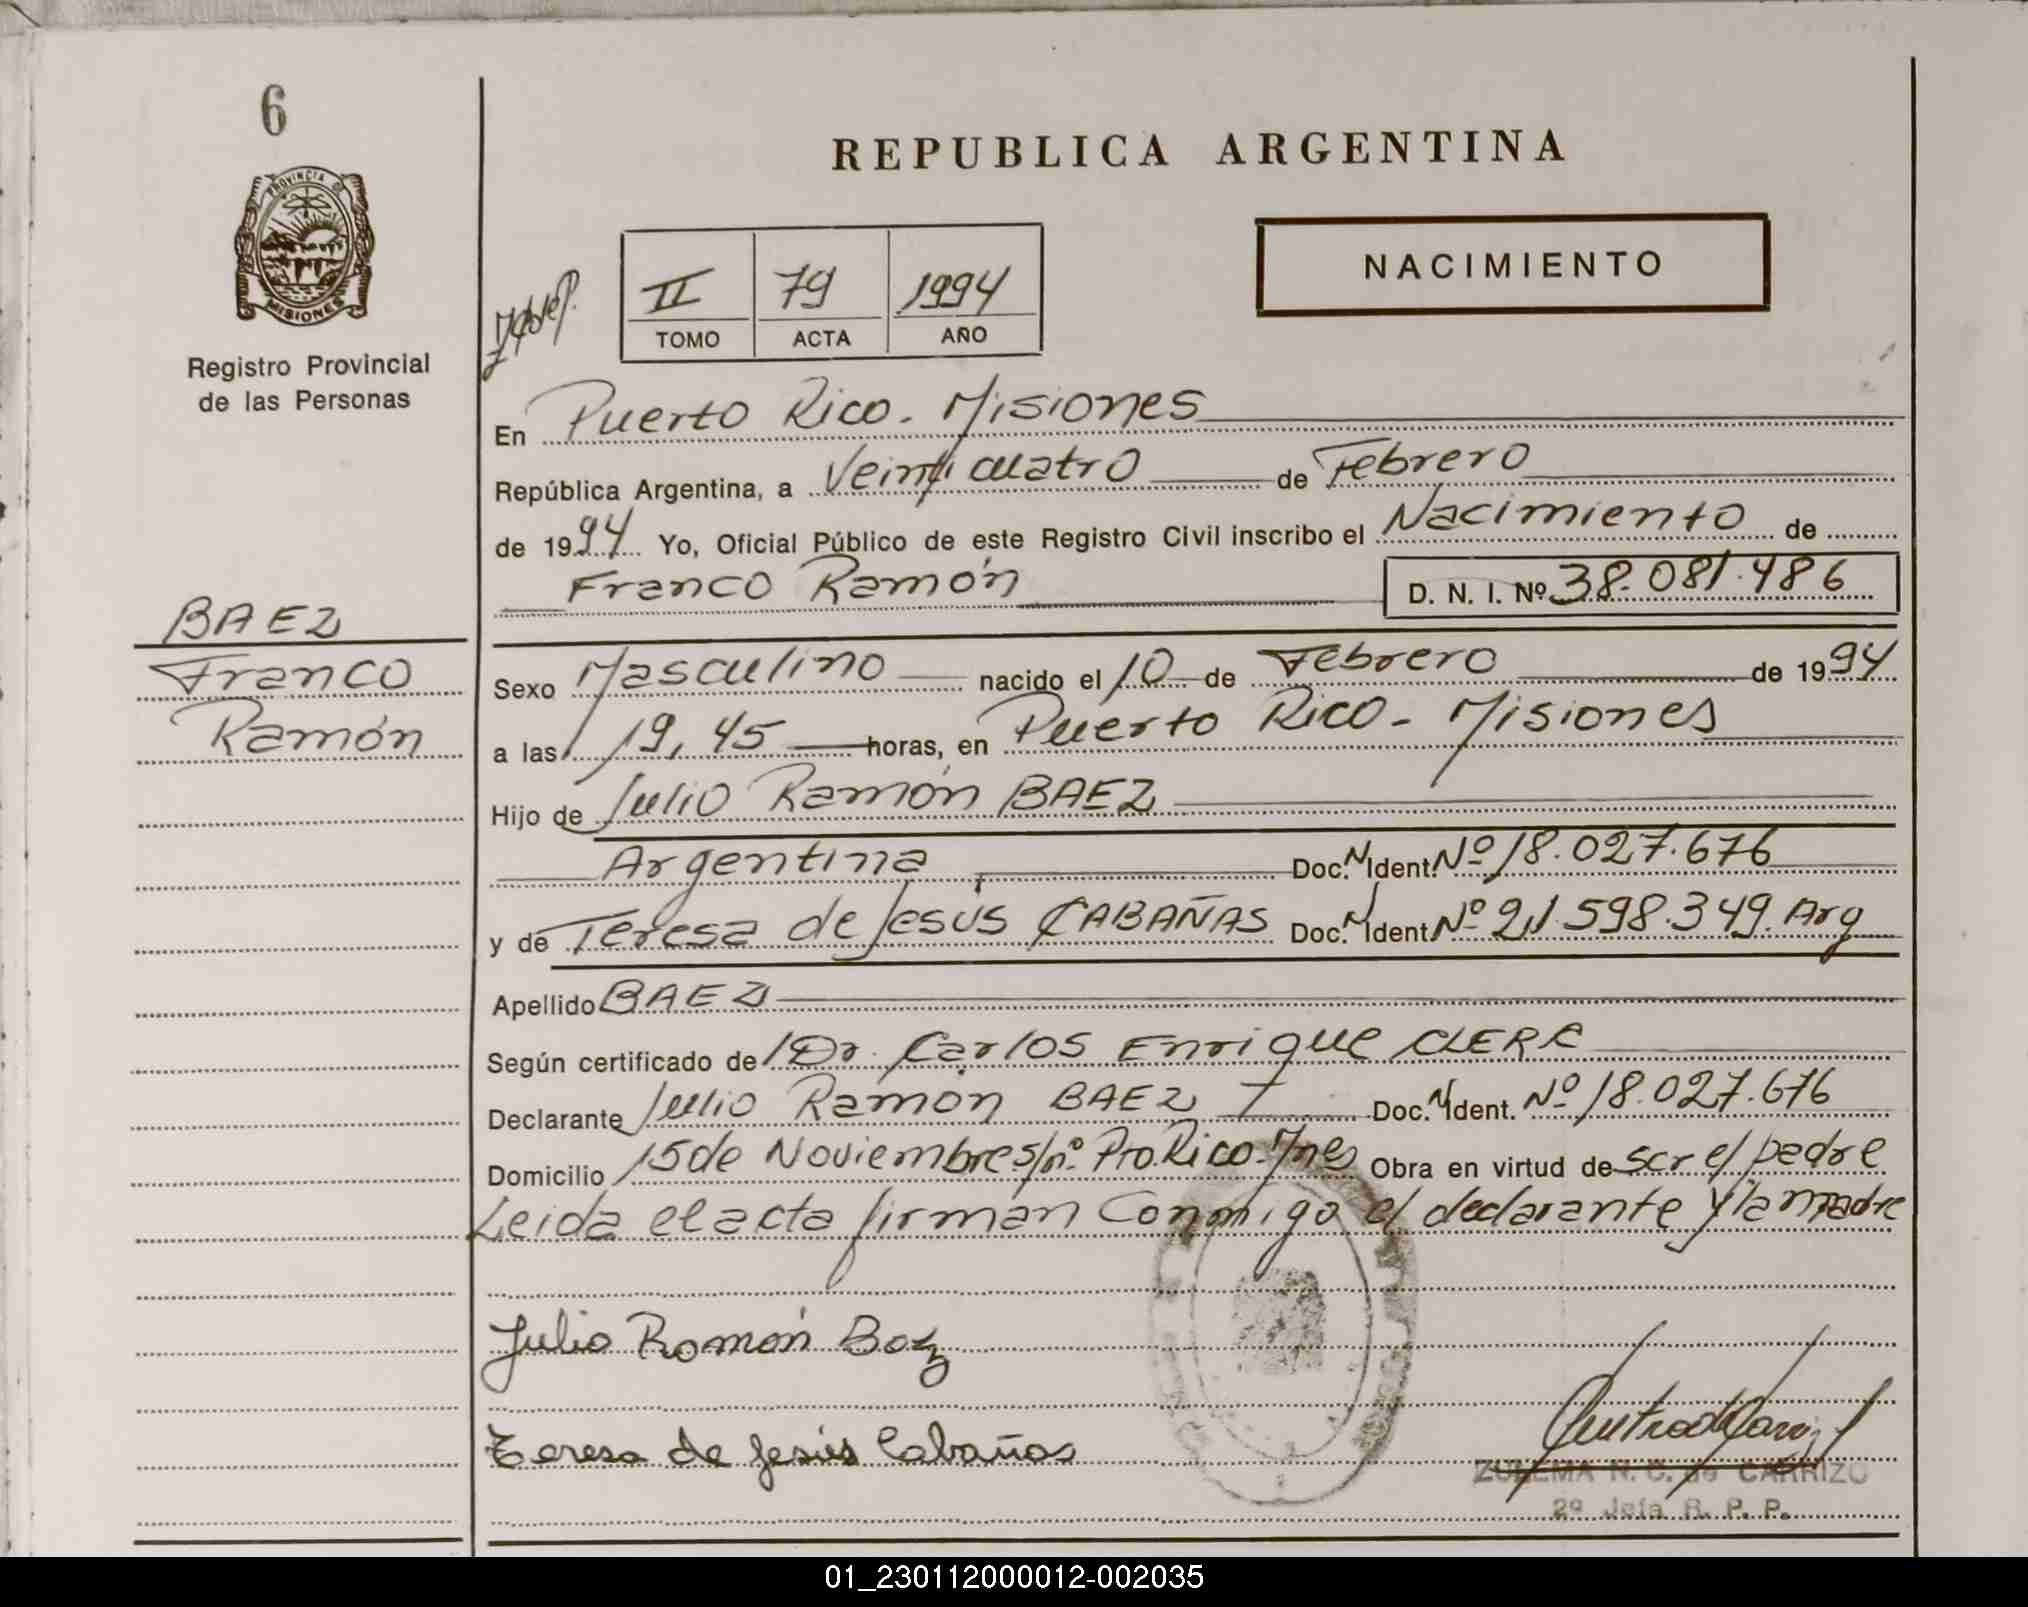 6
PROVINCIA DE
MISIONES
Registro Provincial
de las Personas
REPUBLICA ARGENTINA
NACIMIENTO
II 79 1994
TOMO ACTA AÑO
En Puerto Rico. Misiones
República Argentina, a Veinticuatro de Febrero
de 1994 Yo, Oficial Público de este Registro Civil inscribo el Nacimiento de
Franco Ramón D. N. I. Nº 38.081.486
BAEZ
Franco
Ramón
Sexo Masculino nacido el 10 de Febrero de 1994
a las 19,45 horas, en Puerto Rico - Misiones
Hijo de Julio Ramón BAEZ
Argentina Doc. N. Ident. Nº 18.027.676
y de Teresa de Jesús CABAÑAS Doc. N. Ident. Nº 21.598.349. Arg
Apellido BAEZ
Según certificado de Dr. Carlos Enrique CLERC
Declarante Julio Ramón BAEZ Doc. N. Ident. Nº 18.027.676
Domicilio 15 de Noviembre s/nº. Pto. Rico - Mnes Obra en virtud de ser el padre
Leida el acta firman conmigo el declarante y la madre
Julio Ramón Baez
Teresa de Jesús Cabañas
ZULEMA N. C. de CARRIZO
2º Jefa R. P. P.
01_230112000012-002035